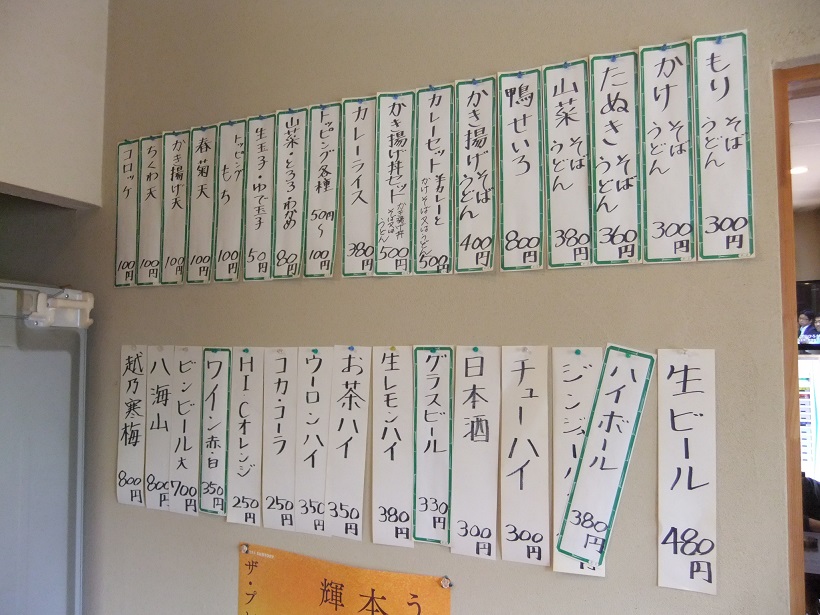 もり そば うどん 300円
かけ そば うどん 300円
たぬき そば うどん 360円
山菜 そば うどん 380円
鴨せいろ 800円
かき揚げ そば うどん 400円
カレーセット 半カレーと かけそば又はうどん 500円
かき揚げ丼セット かき揚げ丼 そば又はうどん 500円
カレーライス 380円
トッピング各種 50円〜100円
山菜・とろろ わかめ 80円
生玉子・ゆで玉子 50円
トッピング もち 100円
春菊天 100円
かき揚げ天 100円
ちくわ天 100円
コロッケ 100円
生ビール 480円
ハイボール 380円
ジンジャー
チューハイ 300円
日本酒 300円
グラスビール 330円
生レモンハイ 380円
お茶ハイ 350円
ウーロンハイ 350円
コカ・コーラ 250円
HI-Cオレンジ 250円
ワイン 赤・白 350円
ビンビール大 700円
八海山 800円
越乃寒梅 800円
う
本
輝
ザ・プ